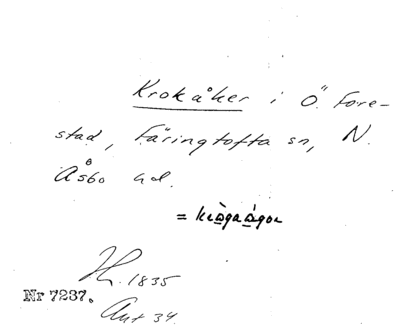 Krokåker i Ö. Fore-
stad, Färingtofta sn, N.
Åsbo hd.
= krògaágor
H. 1835
Nr 7237.
Ant 34